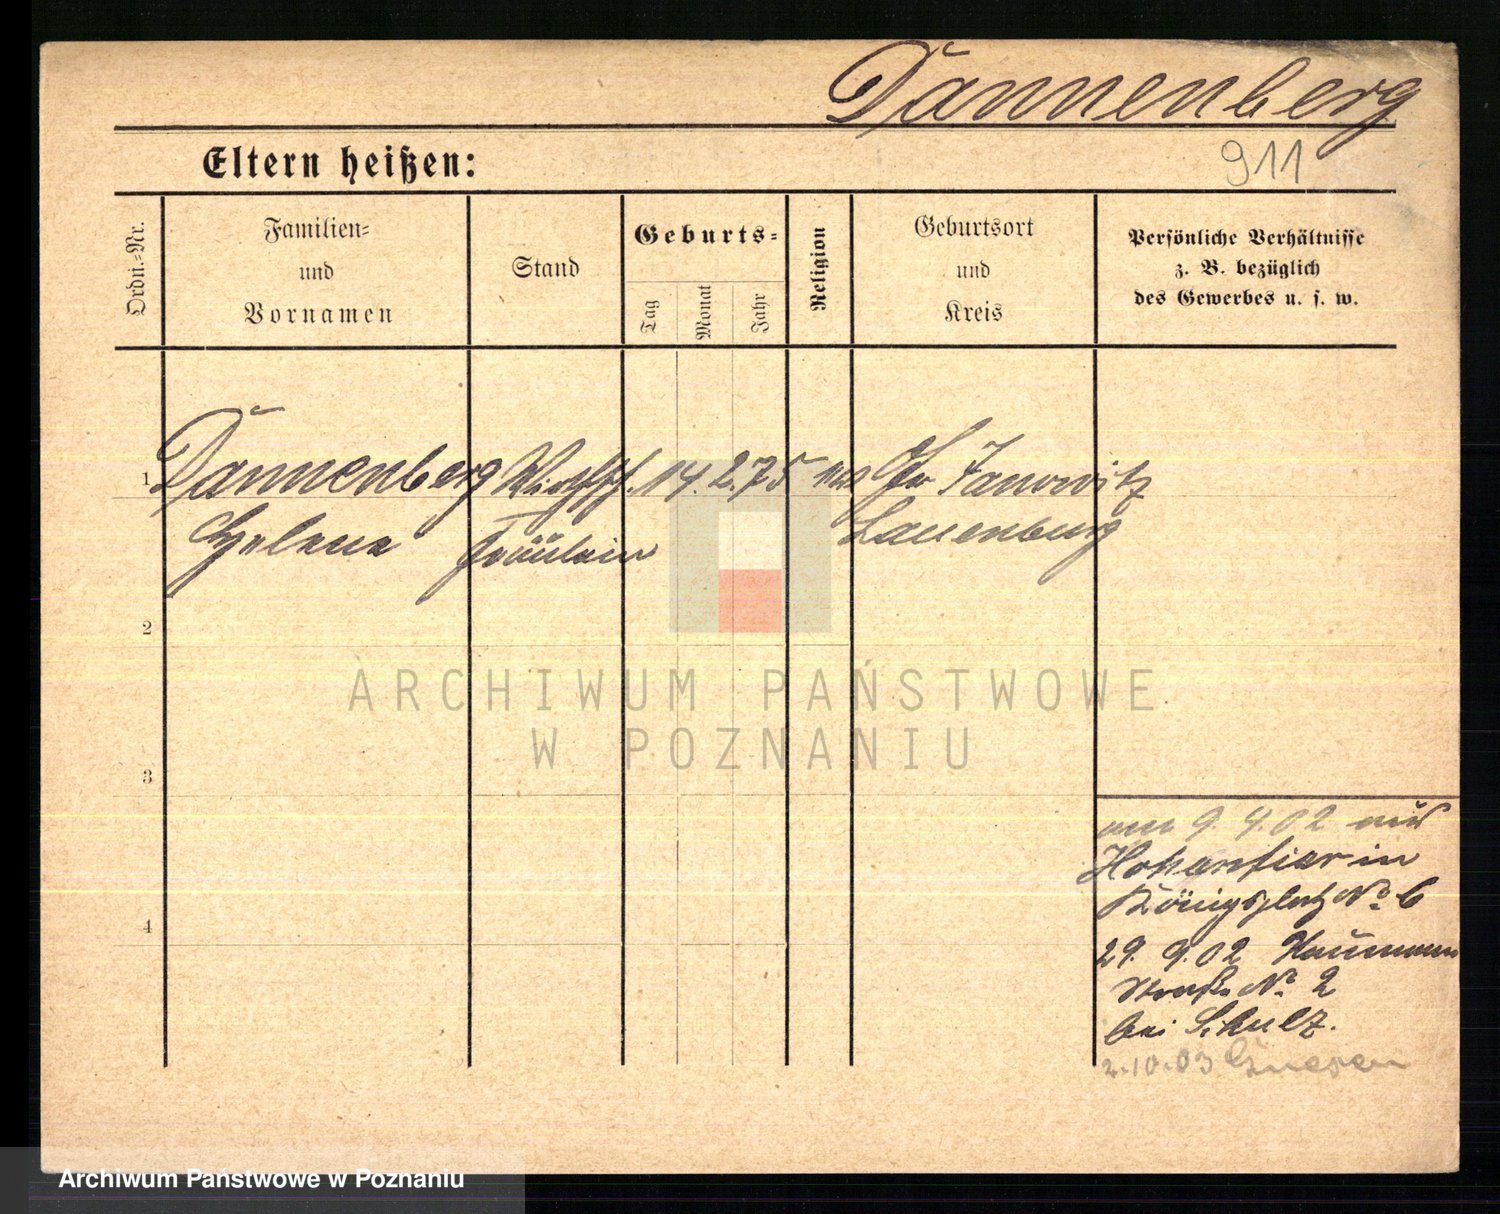 Dannenberg
911
Eltern heißen:
Ordn.-Nr.
Familien-
und
Vornamen
Stand
Geburts-
Tag
Monat
Jahr
Religion
Geburtsort
und
Kreis
Persönliche Verhältnisse
z. B. bezüglich
des Gewerbes u. s. w.
1 Dannenberg Wirthsch. 14. 2. 75 Gr. Janowitz
Helene Fräulein Lauenburg
2
3
4
am 9. 4. 02 aus
Hohensier in
Königsplatz No. 6
29. 9. 02 Naumann
Straße No. 2
bei Schulz.
2.10.03 Gnesen
ARCHIWUM PAŃSTWOWE
W POZNANIU
Archiwum Państwowe w Poznaniu